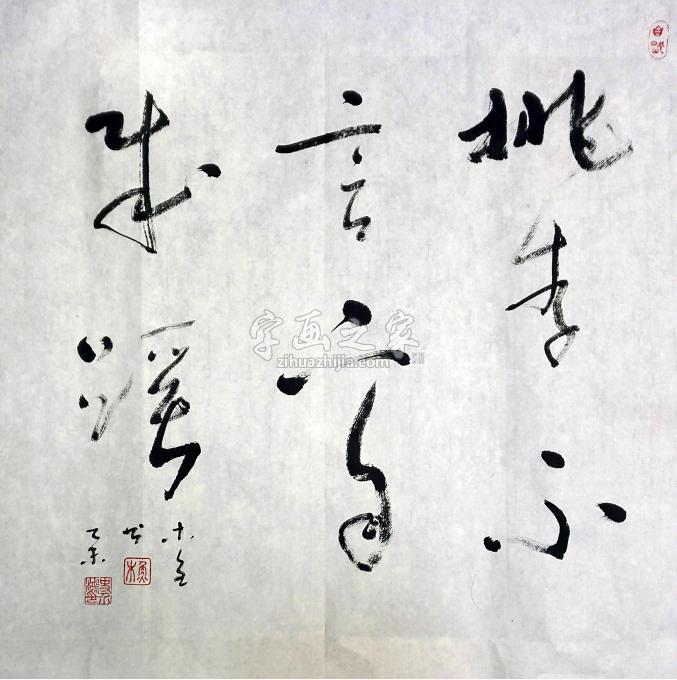 桃李不
言下自
成蹊
乙未
字画之家
zihuazhijia.com